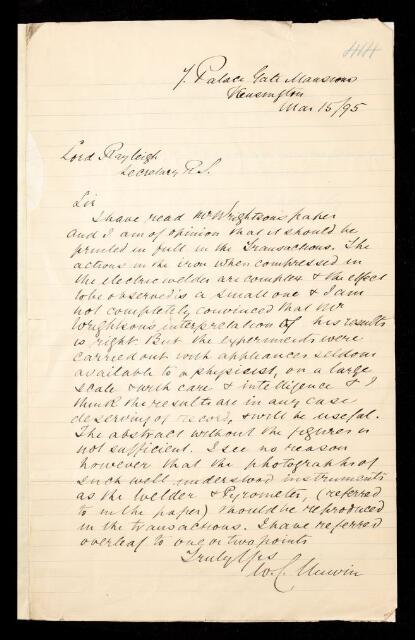 44
7. Palace Gate Mansions
Kensington
Mar 15/95
Lord Rayleigh
Secretary R.S.
Sir
I have read Mr Wrightson's paper
and I am of opinion that it should be
printed in full in the Transactions. The
actions in the iron when compressed in
the electric welder are complex & the effect
to be observed is a small one & I am
not completely convinced that Mr
Wrightson's interpretation of his results
is right. But the experiments were
carried out with appliances seldom
available to a physicist, on a large
scale & with care & intelligence & I
think the results are in any case
deserving of record, & will be useful.
The abstract without the figures is
not sufficient. I see no reason
however that the photographs of
such well understood instruments
as the Welder & Pyrometer, (referred
to in the paper) should be reproduced
in the transactions. I have referred
overleaf to one or two points
Truly Yrs
W. C. Unwin